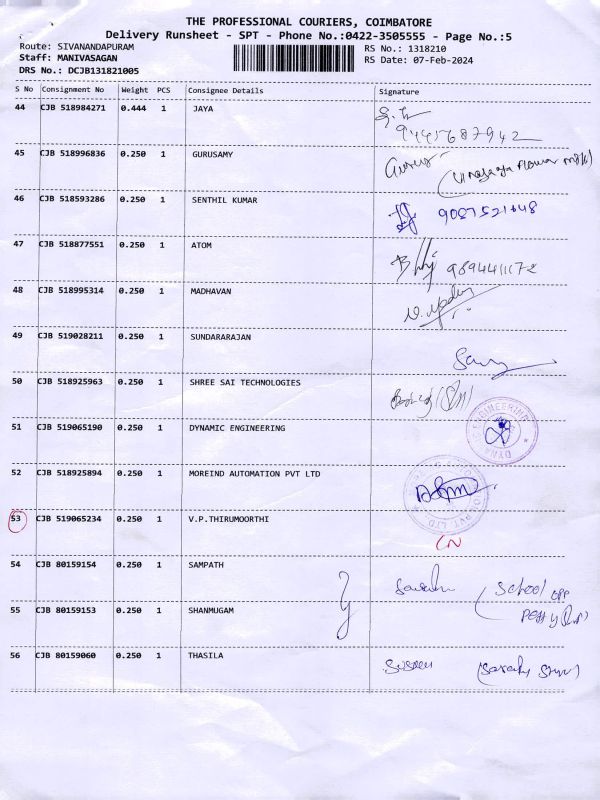 THE PROFESSIONAL COURIERS, COIMBATORE
Delivery Runsheet - SPT - Phone No.:0422-3505555 - Page No.:5
Route: SIVANANDAPURAM
Staff: MANIVASAGAN
DRS No.: DCJB131821005
RS No.: 1318210
RS Date: 07-Feb-2024
S No Consignment No Weight PCS Consignee Details Signature
44 CJB 518984271 0.444 1 JAYA
9445687942
45 CJB 518996836 0.250 1 GURUSAMY
46 CJB 518593286 0.250 1 SENTHIL KUMAR
47 CJB 518877551 0.250 1 ATOM
48 CJB 518995314 0.250 1 MADHAVAN
49 CJB 519028211 0.250 1 SUNDARARAJAN
50 CJB 518925963 0.250 1 SHREE SAI TECHNOLOGIES
51 CJB 519065190 0.250 1 DYNAMIC ENGINEERING
52 CJB 518925894 0.250 1 MOREIND AUTOMATION PVT LTD
53 CJB 519065234 0.250 1 V.P.THIRUMOORTHI
CN
54 CJB 80159154 0.250 1 SAMPATH
School opp
55 CJB 80159153 0.250 1 SHANMUGAM
56 CJB 80159060 0.250 1 THASILA